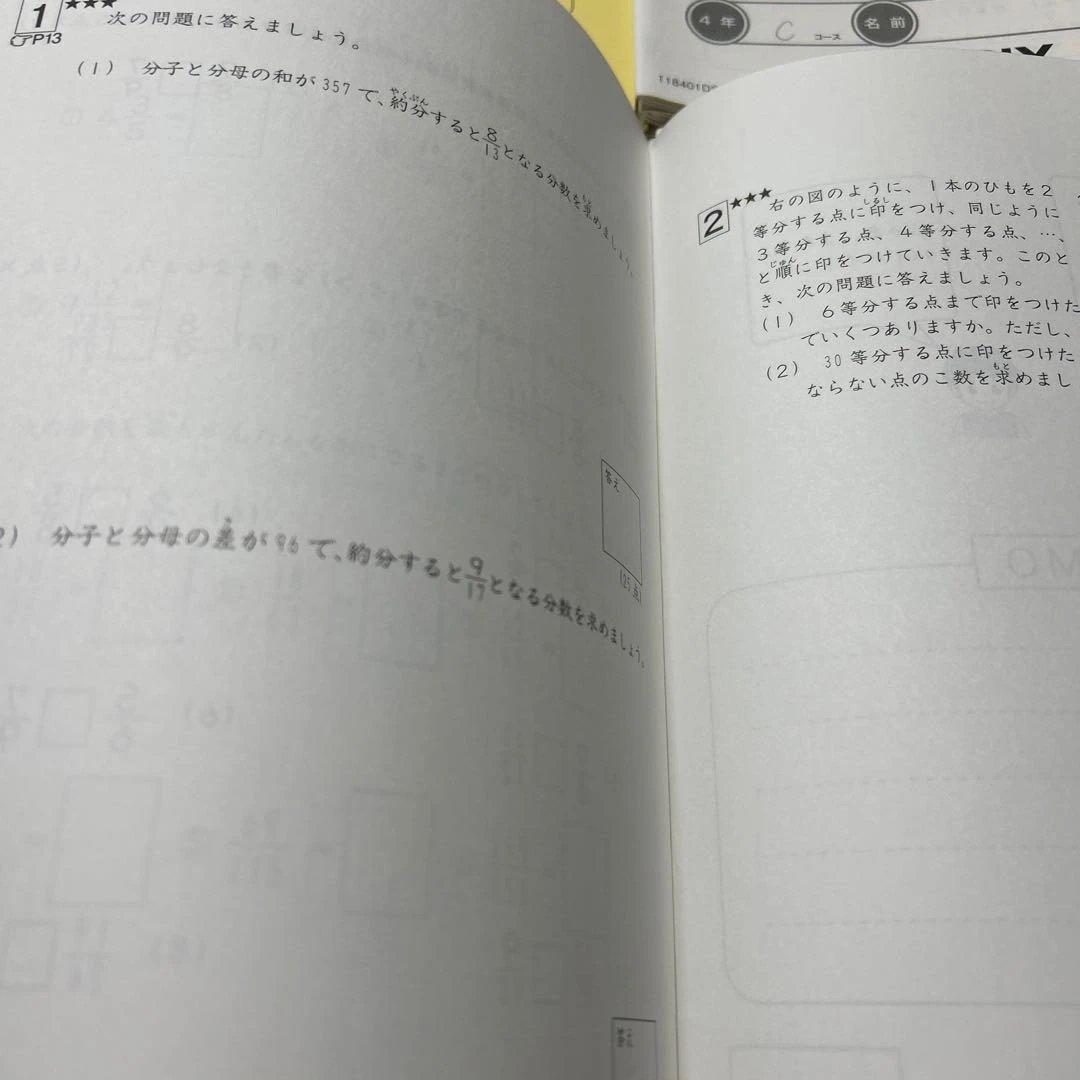 1 ★★★ 次の問題に答えましょう。
☞P13
(1) 分子と分母の和が357で、約分すると8/13となる分数を求めましょう。
答え
(25点)
2) 分子と分母の差が96で、約分すると9/17となる分数を求めましょう。
4年 C コース 名前
118401D
2 ★★★ 右の図のように、1本のひもを2
等分する点に印をつけ、同じように
3等分する点、4等分する点、…、
と順に印をつけていきます。このと
き、次の問題に答えましょう。
(1) 6等分する点まで印をつけた
でいくつありますか。ただし、
(2) 30等分する点に印をつけた
ならない点のこ数を求めまし